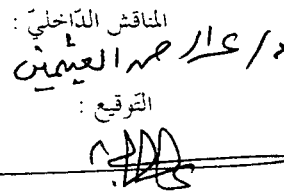 المناقش الدّاخليّ :
د/ عبد الرحمن العثيمين
التّوقيع :